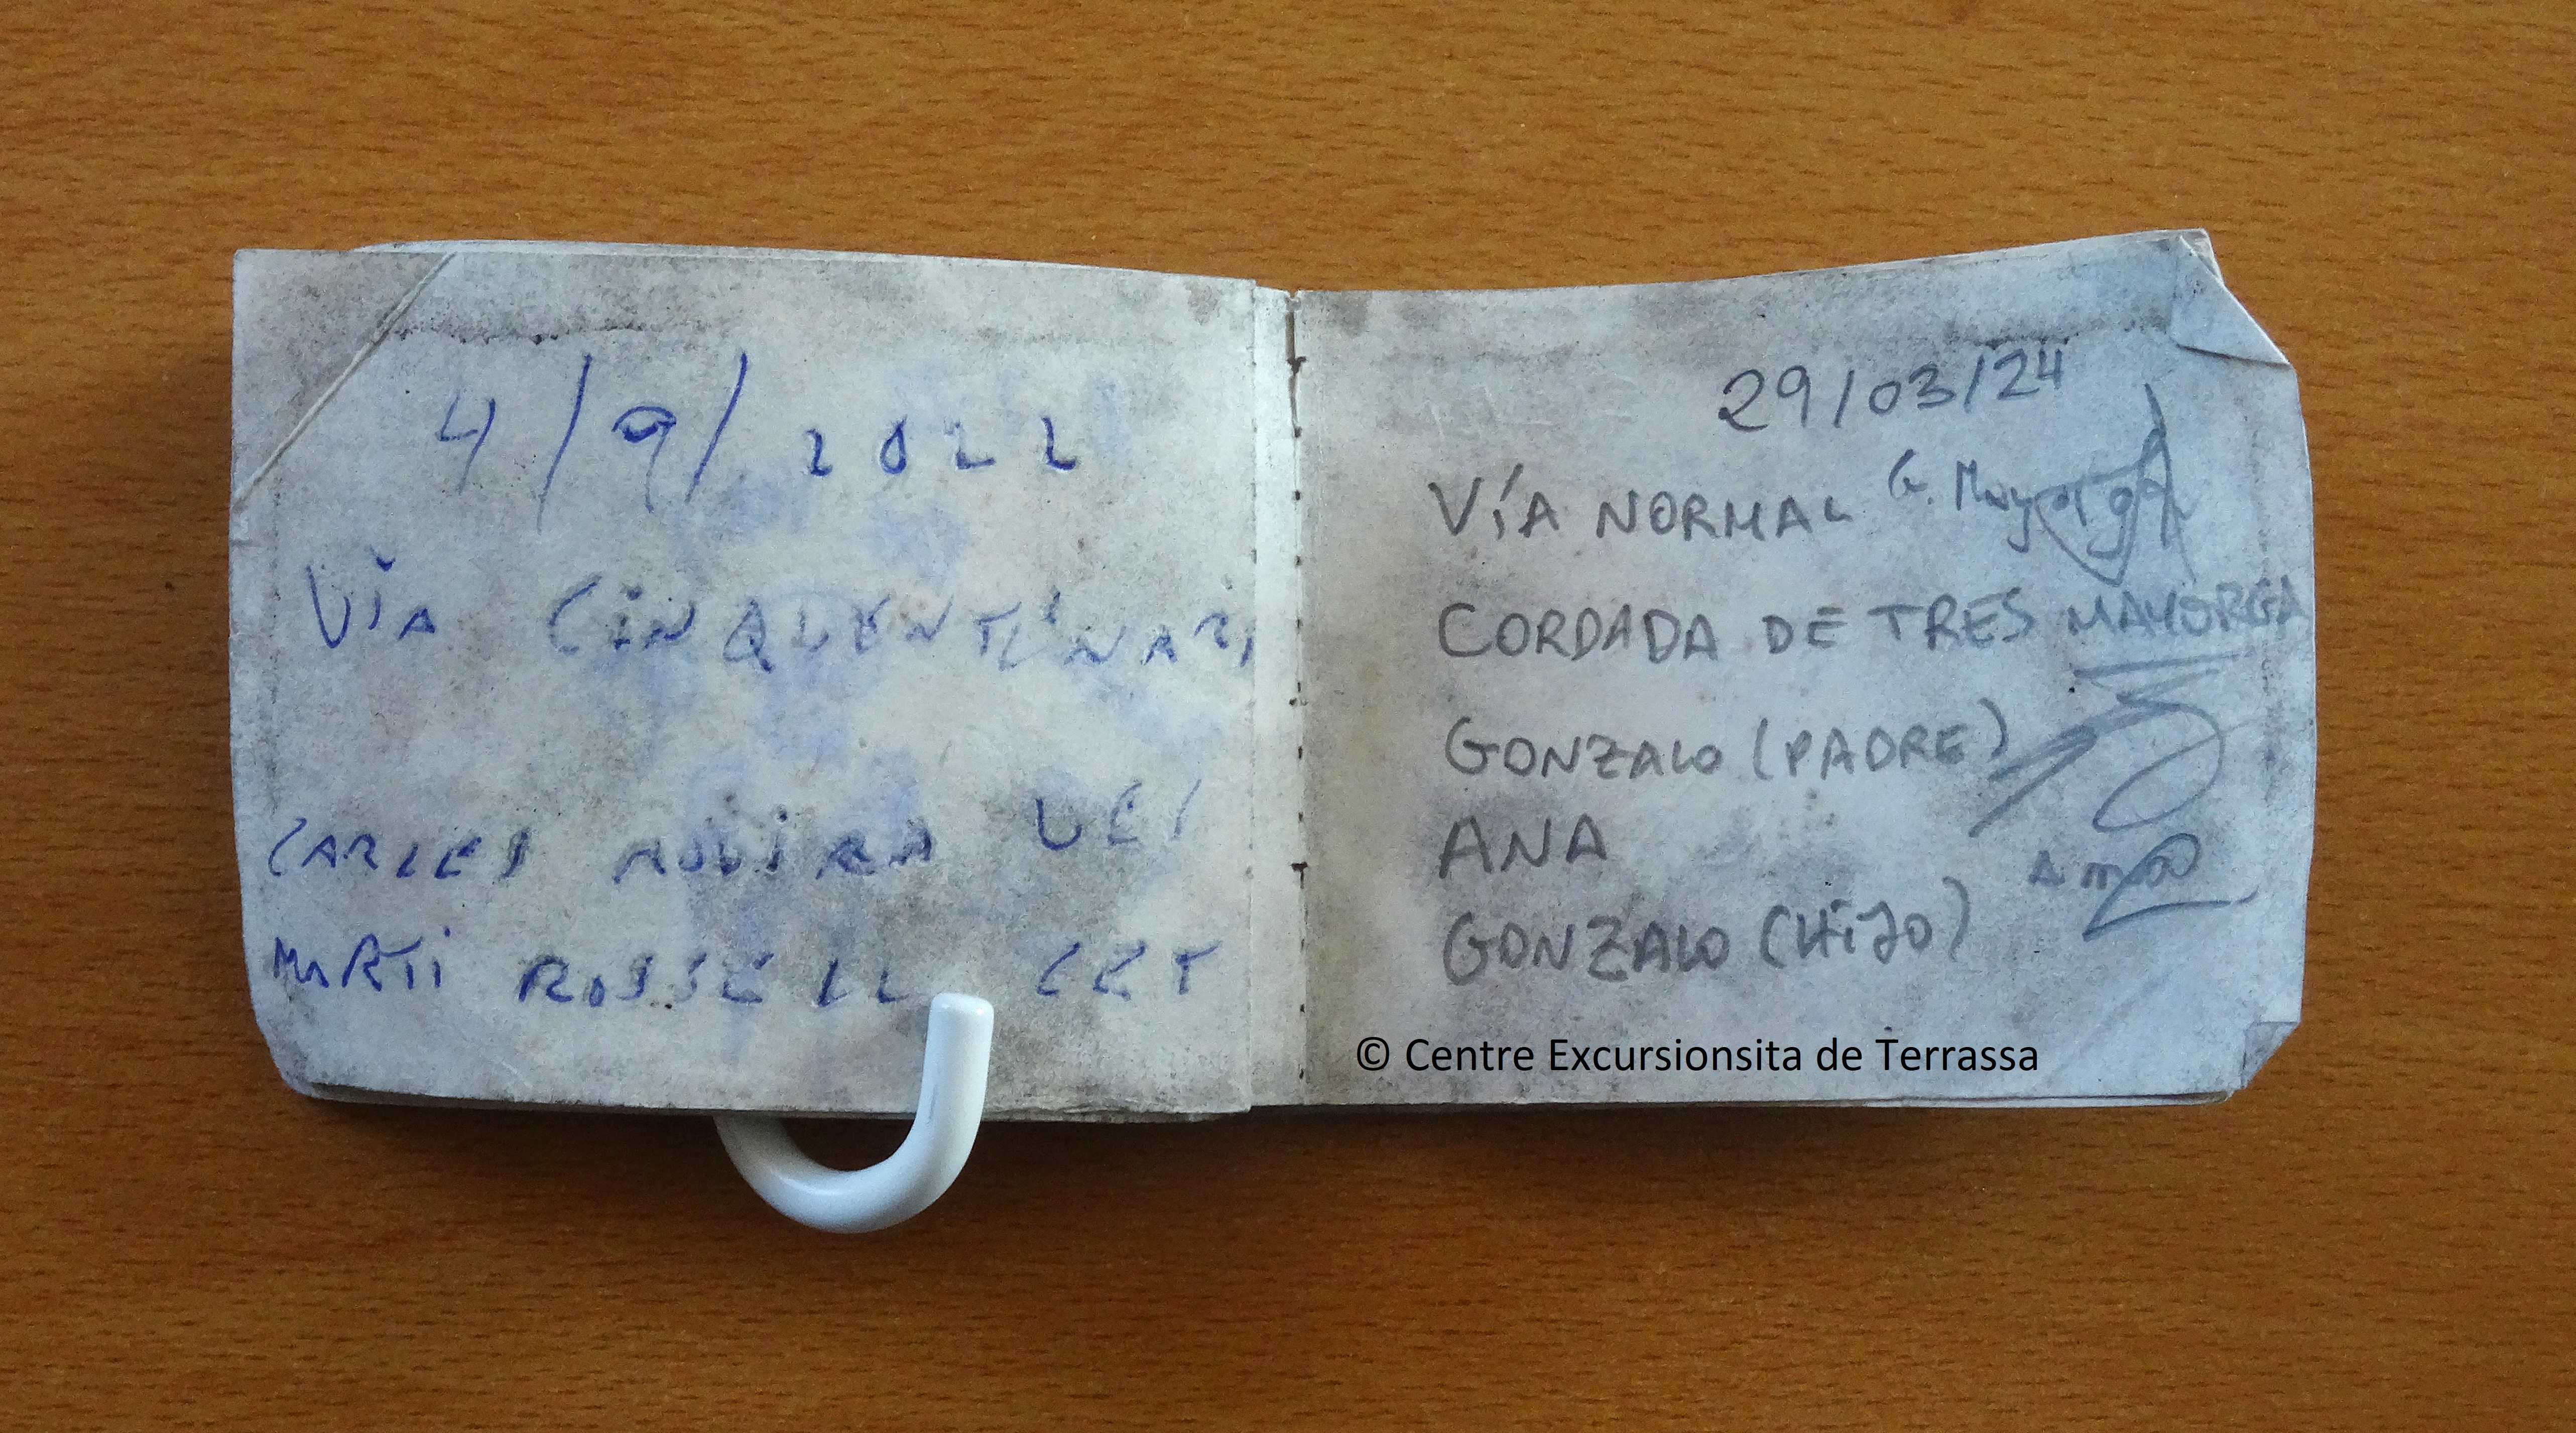 4/9/2022
VÍA CINQUENTENARI
CARLES
MARTI ROSSELL CET
29/03/24
VÍA NORMAL G. Mayorga
CORDADA DE TRES MAYORGA
GONZALO (PADRE)
ANA
GONZALO (HiJO)
© Centre Excursionsita de Terrassa